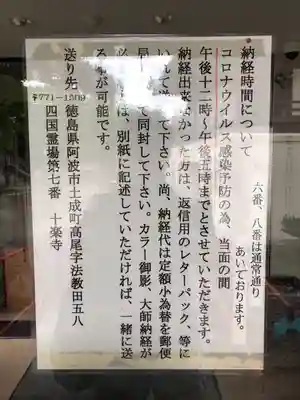 六番、八番は通常通り
あいております。
納経時間について
コロナウイルス感染予防の為、当面の間
午後十二時～午後五時までとさせていただきます。
納経出来なかった方は、返信用のレターパック、等に
いれて送って下さい。尚、納経代は定額小為替を郵便
局 して同封して下さい。カラー御影、大師納経が
必 は、別紙に記述していただければ、一緒に送
る事が可能です。
〒771-1509
送り先 徳島県阿波市土成町高尾字法教田五八
四国霊場第七番 十楽寺